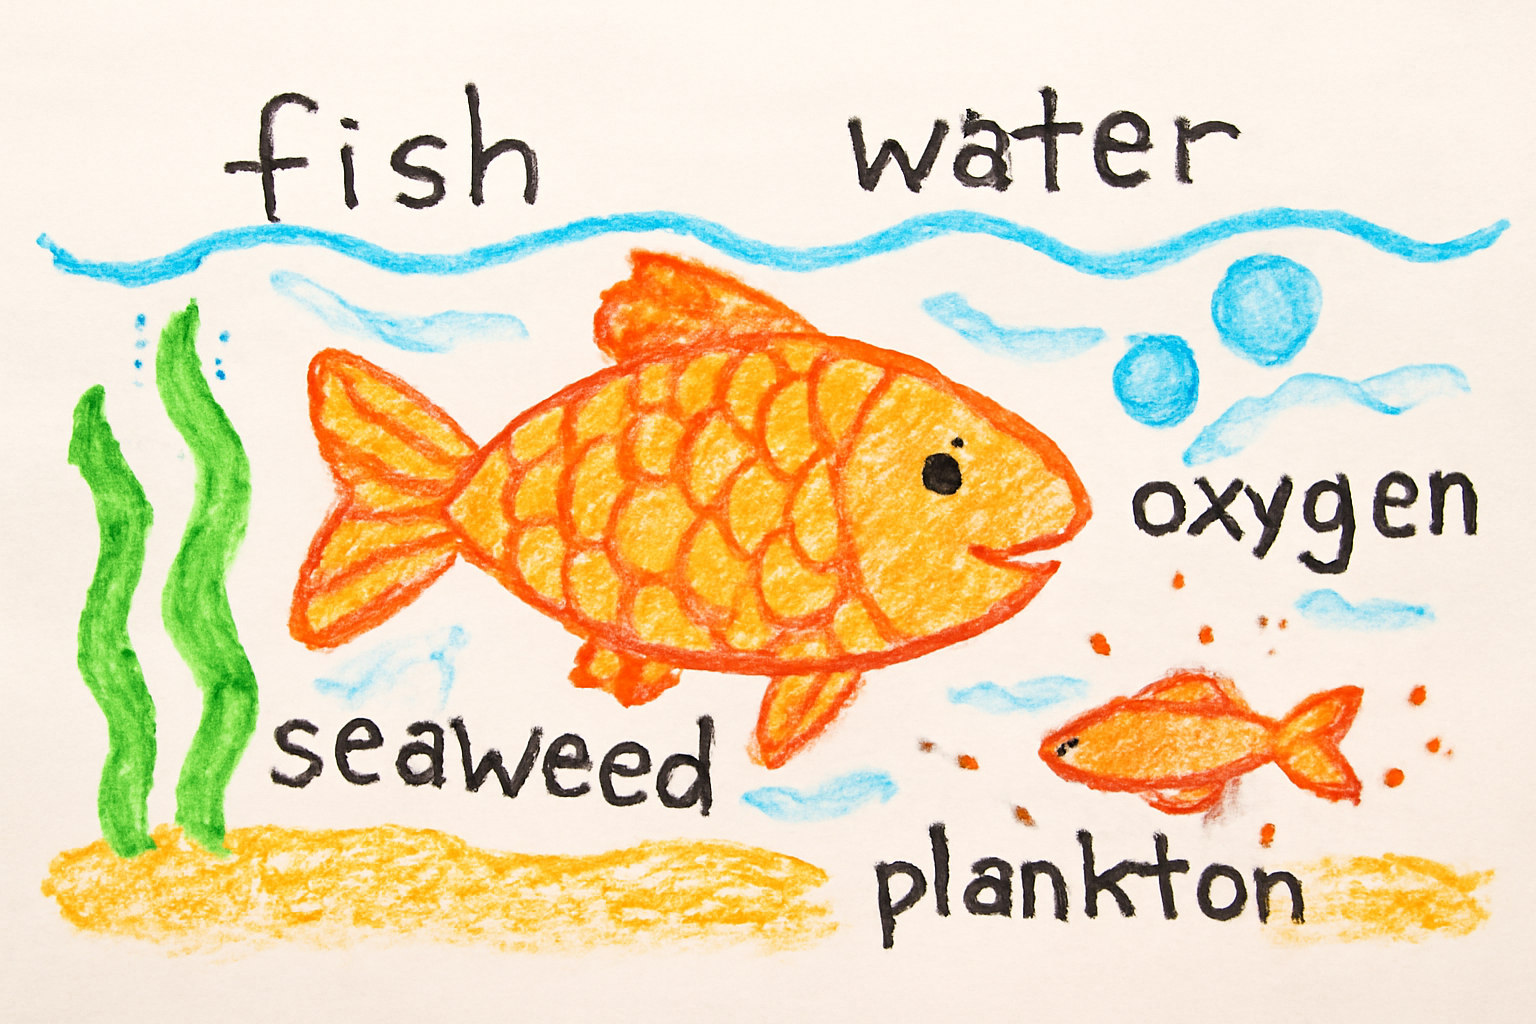 fish
water
oxygen
seaweed
plankton